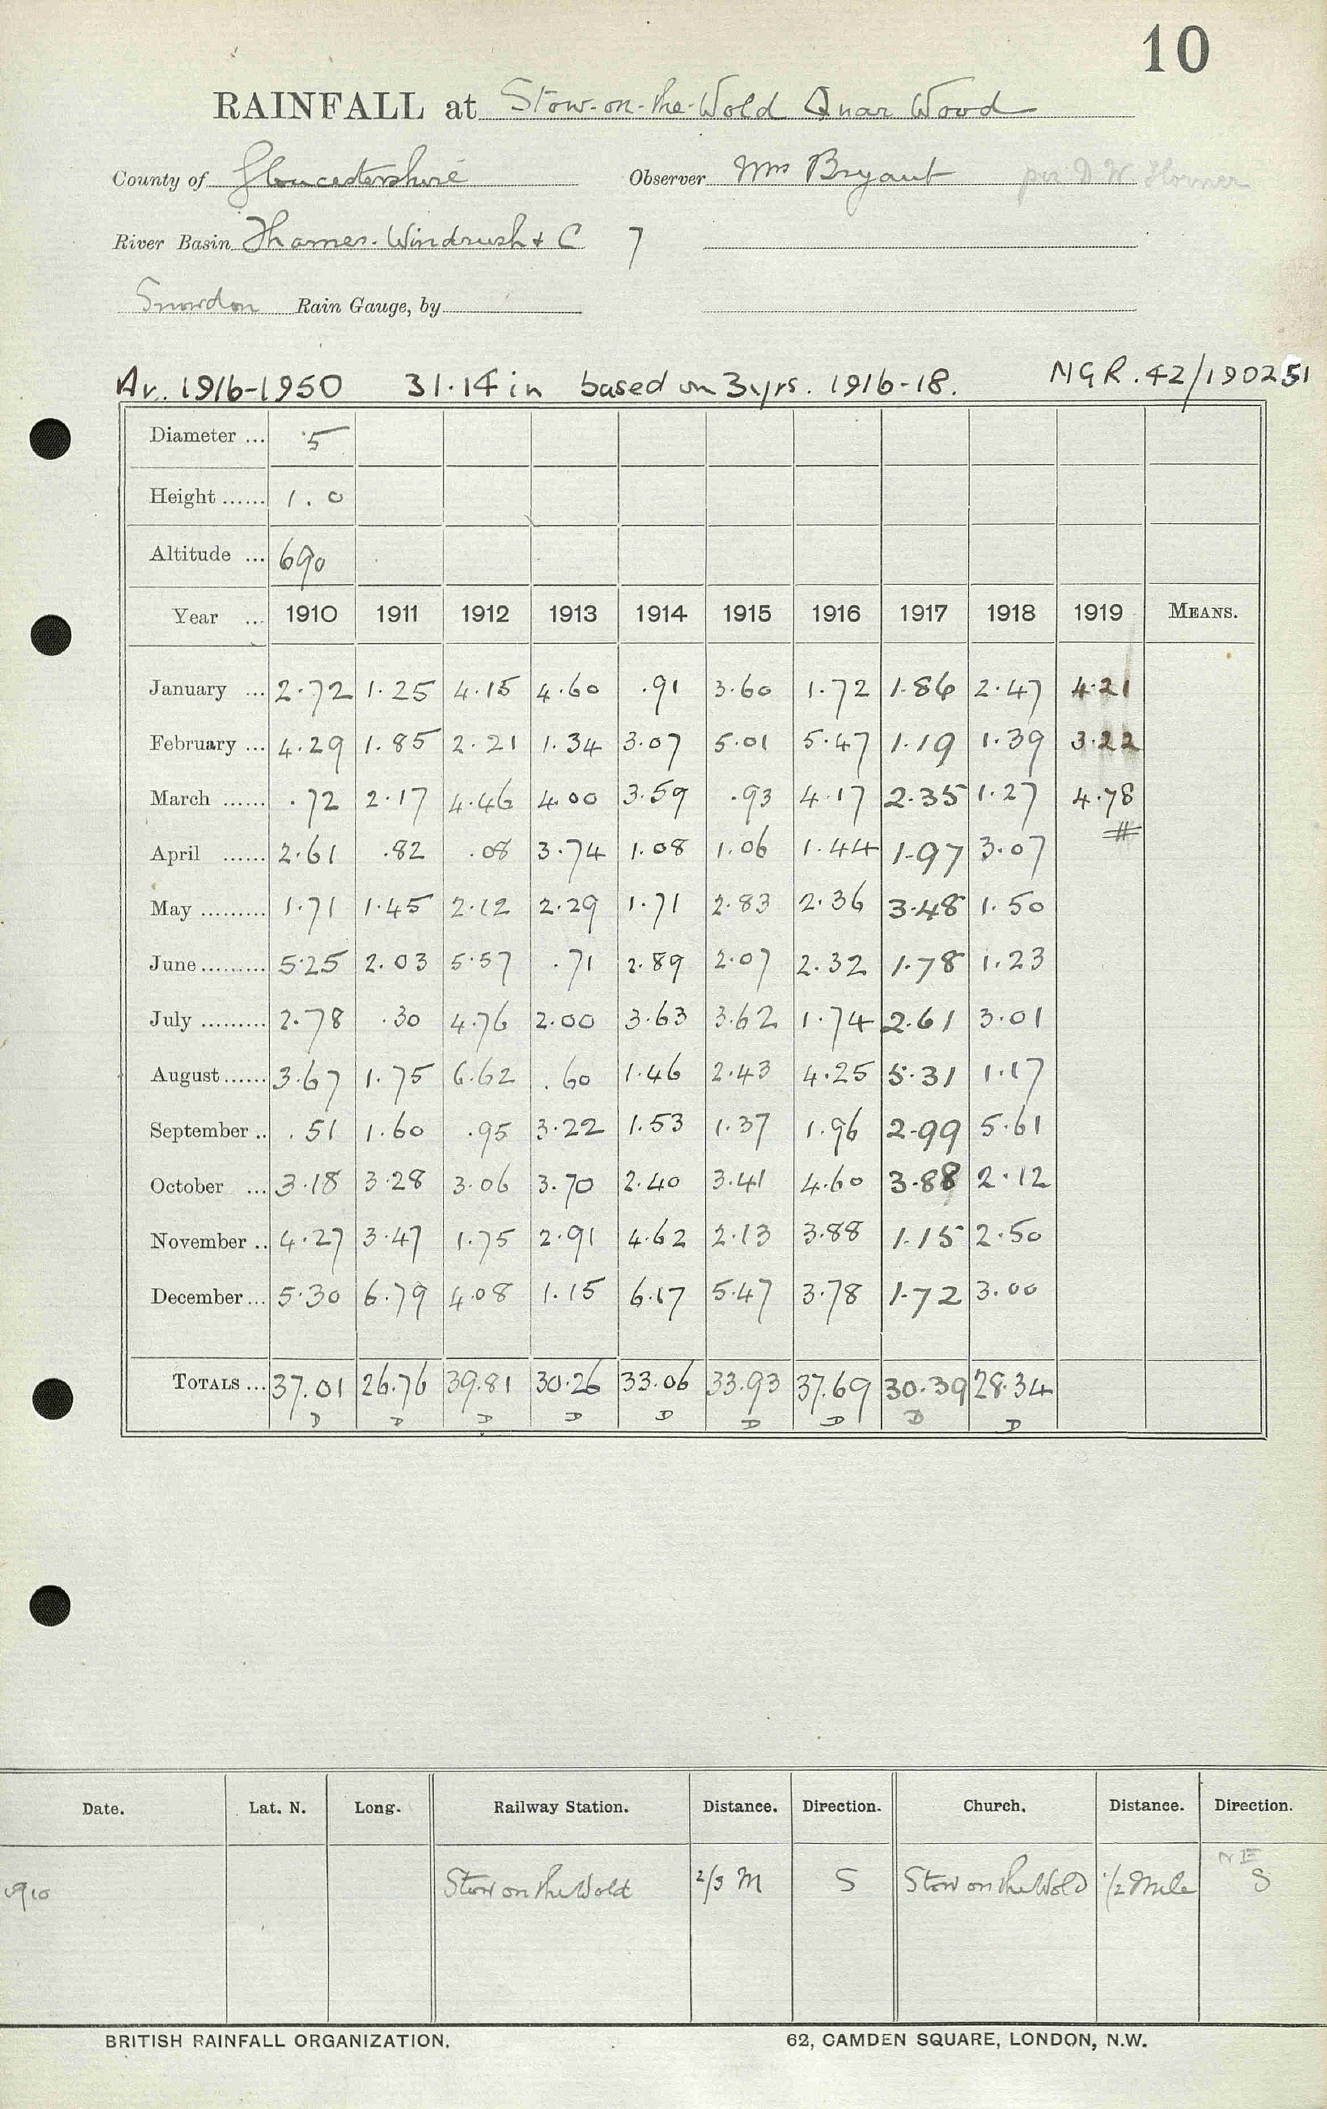 10
RAINFALL at Stow-on-the-Wold Quar Wood
County of Gloucestershire Observer Mrs Bryant per D W Horner
River Basin Thames. Windrush & C 7
Snowdon Rain Gauge, by
Av. 1916-1950 31.14 in based on 3 yrs. 1916-18. NGR. 42/190251
Diameter ... 5
Height ...... 1.0
Altitude ... 690
Year ... 1910 1911 1912 1913 1914 1915 1916 1917 1918 1919 MEANS.
January ... 2.72 1.25 4.15 4.60 .91 3.60 1.72 1.86 2.47 4.21
February ... 4.29 1.85 2.21 1.34 3.07 5.01 5.47 1.19 1.39 3.22
March ...... .72 2.17 4.46 4.00 3.59 .93 4.17 2.35 1.27 4.78
April ...... 2.61 .82 .08 3.74 1.08 1.06 1.44 1.97 3.07
May ......... 1.71 1.45 2.12 2.29 1.71 2.83 2.36 3.48 1.50
June ......... 5.25 2.03 5.57 .71 2.89 2.07 2.32 1.78 1.23
July ......... 2.78 .30 4.76 2.00 3.63 3.62 1.74 2.61 3.01
August ...... 3.67 1.75 6.62 .60 1.46 2.43 4.25 5.31 1.17
September .. .51 1.60 .95 3.22 1.53 1.37 1.96 2.99 5.61
October ... 3.18 3.28 3.06 3.70 2.40 3.41 4.60 3.88 2.12
November .. 4.27 3.47 1.75 2.91 4.62 2.13 3.88 1.15 2.50
December ... 5.30 6.79 4.08 1.15 6.17 5.47 3.78 1.72 3.00
TOTALS ... 37.01 26.76 39.81 30.26 33.06 33.93 37.69 30.39 28.34
D D D D D D D D D
Date. Lat. N. Long. Railway Station. Distance. Direction. Church. Distance. Direction.
NE
1910 Stow on the Wold 2/3 M S Stow on the Wold 1/2 Mile S
BRITISH RAINFALL ORGANIZATION. 62, CAMDEN SQUARE, LONDON, N.W.